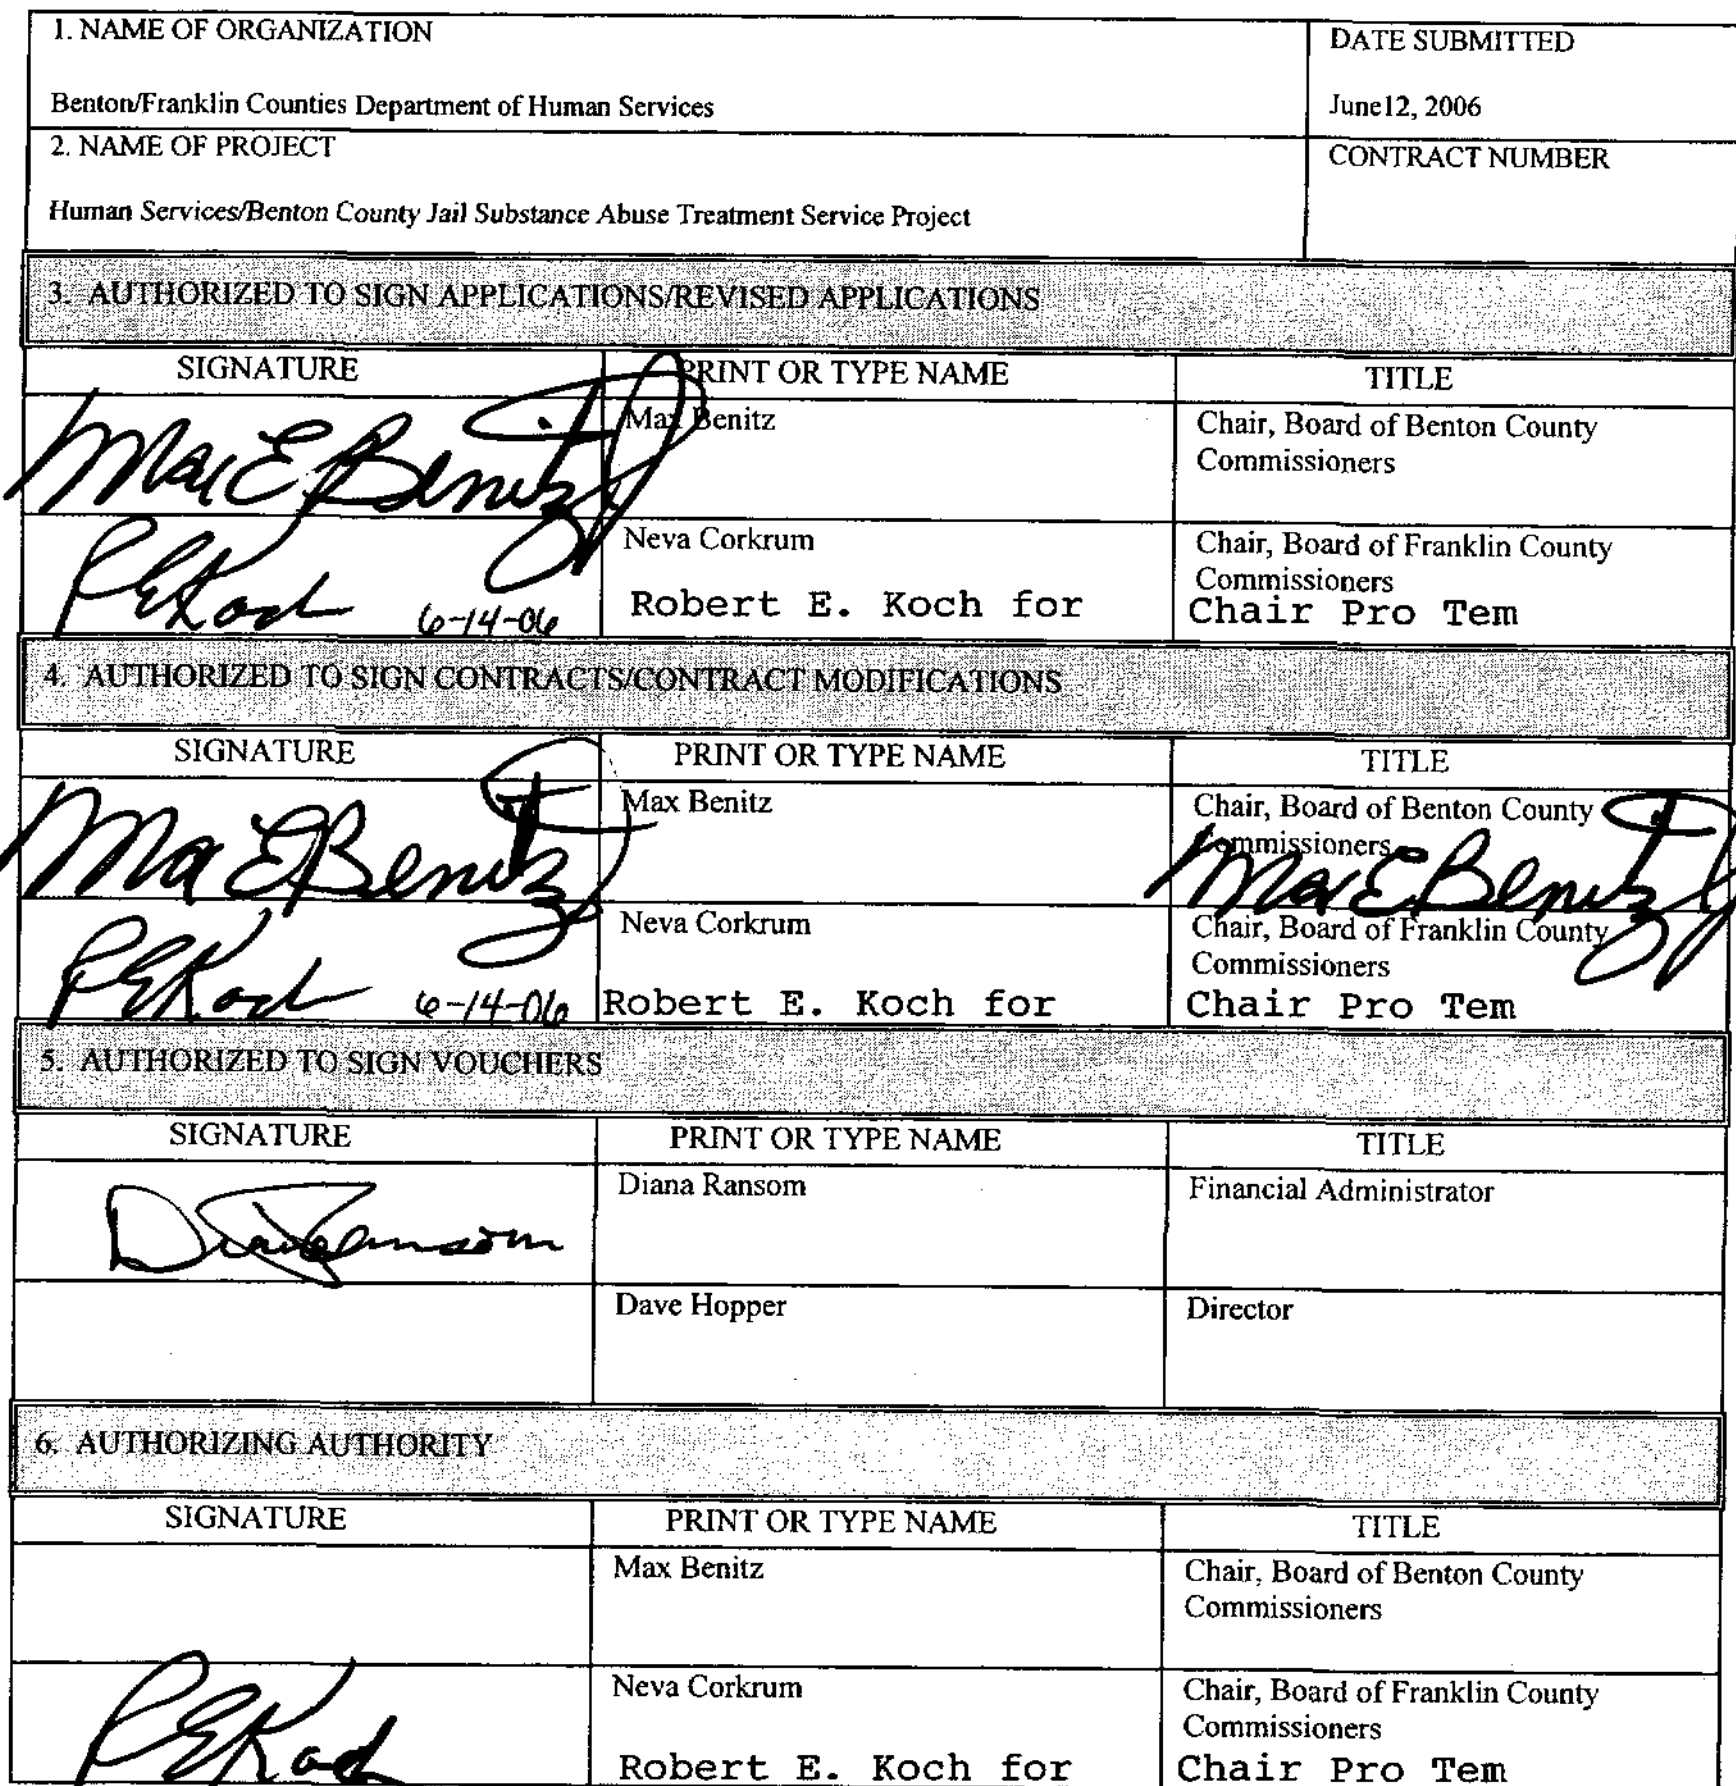 1. NAME OF ORGANIZATION
DATE SUBMITTED
Benton/Franklin Counties Department of Human Services
June12, 2006
2. NAME OF PROJECT
CONTRACT NUMBER
Human Services/Benton County Jail Substance Abuse Treatment Service Project
3. AUTHORIZED TO SIGN APPLICATIONS/REVISED APPLICATIONS
SIGNATURE
PRINT OR TYPE NAME
TITLE
Max E Benitz Jr
Max Benitz
Chair, Board of Benton County
Commissioners
REKoch 6-14-06
Neva Corkrum
Robert E. Koch for
Chair, Board of Franklin County
Commissioners
Chair Pro Tem
4. AUTHORIZED TO SIGN CONTRACTS/CONTRACT MODIFICATIONS
SIGNATURE
PRINT OR TYPE NAME
TITLE
Max E Benitz Jr
Max Benitz
Chair, Board of Benton County
Commissioners
Max E Benitz Jr
REKoch 6-14-06
Neva Corkrum
Robert E. Koch for
Chair, Board of Franklin County
Commissioners
Chair Pro Tem
5. AUTHORIZED TO SIGN VOUCHERS
SIGNATURE
PRINT OR TYPE NAME
TITLE
Diana Ransom
Diana Ransom
Financial Administrator
Dave Hopper
Director
6. AUTHORIZING AUTHORITY
SIGNATURE
PRINT OR TYPE NAME
TITLE
Max Benitz
Chair, Board of Benton County
Commissioners
REKoch
Neva Corkrum
Robert E. Koch for
Chair, Board of Franklin County
Commissioners
Chair Pro Tem